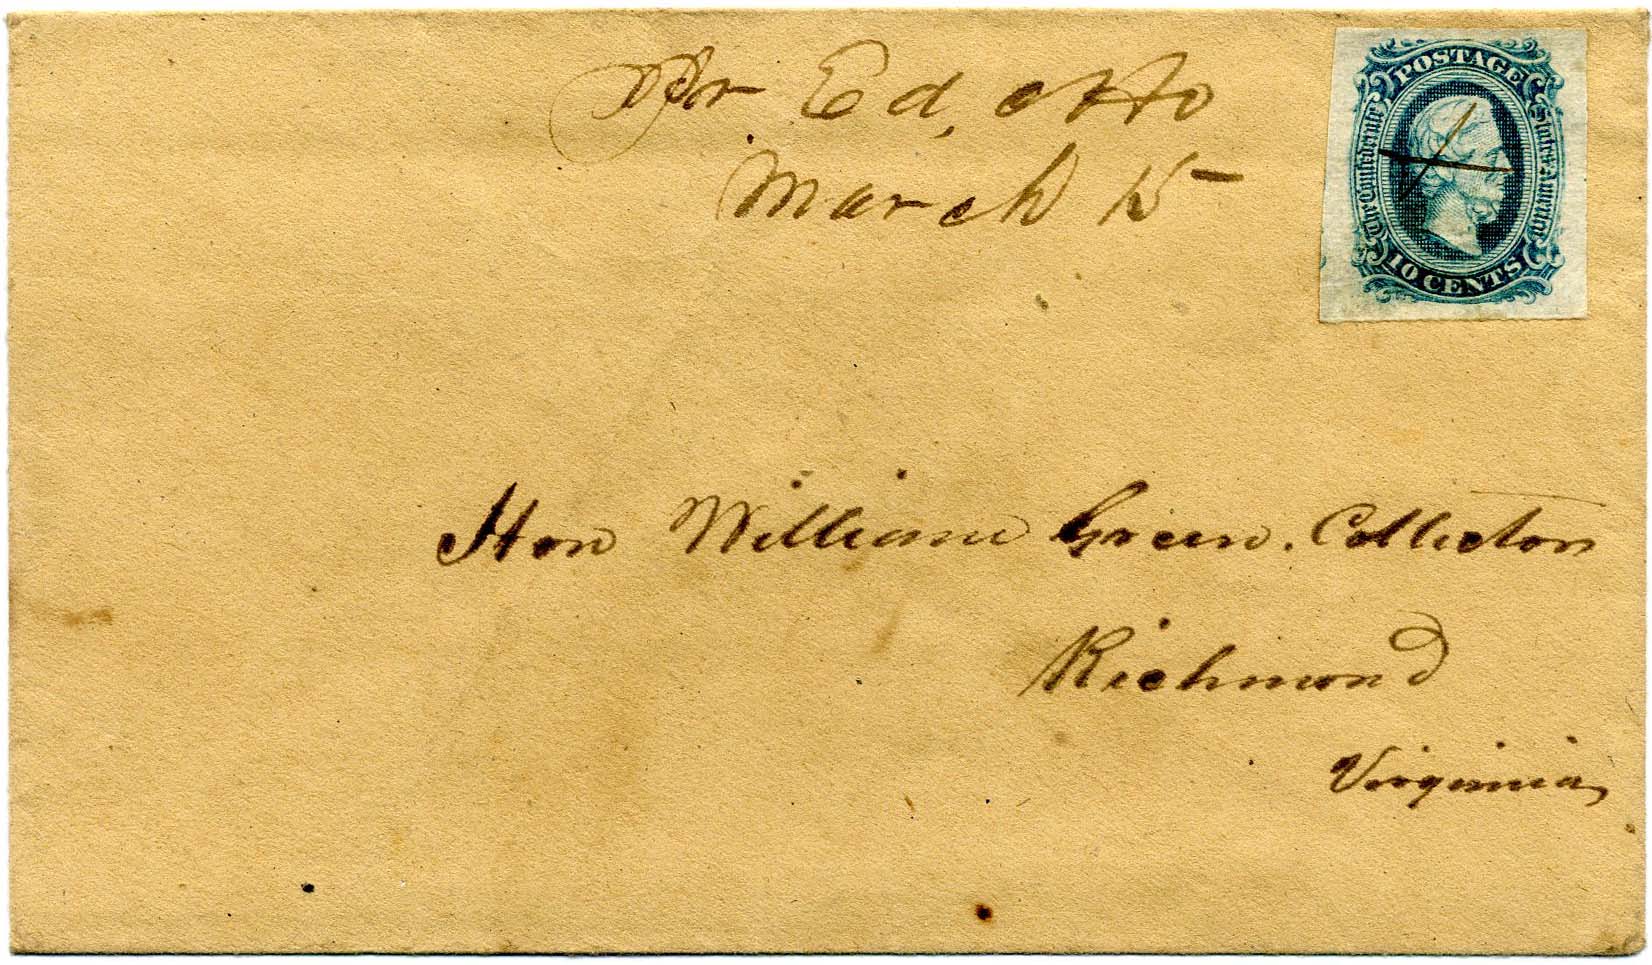 Pr Ed. Otto
March 15
POSTAGE
The Confederate States of America
10 CENTS
Hon William Green. Collector
Richmond
Virginia